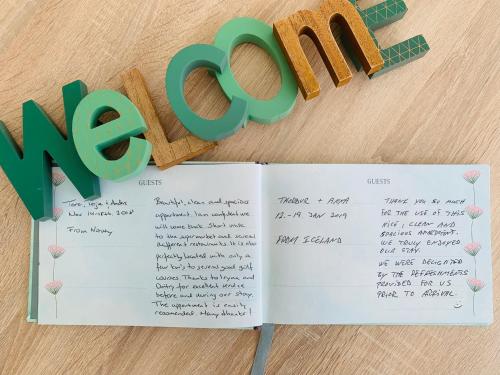 Welcome
GUESTS
Nov 14-
From Norway
Beautiful, clean and spacious
appartment. I am confident we
will come back. Short walk
to the supermarket and several
different restaurants. It is also
perfectly located with only a
few km's to several good golf
courses. Thanks to Iryna and
Dmitry for excellent service
before and during our stay.
The appartment is easily
recomended. Many thanks!
GUESTS
12.-19. JAN 2019
FROM ICELAND
THANK YOU SO MUCH
FOR THE USE OF THIS
NICE, CLEAN AND
SPACIOUS APARTMENT.
WE TRULY ENJOYED
OUR STAY.
WE WERE DELIGHTED
BY THE REFRESHMENTS
PROVIDED FOR US
PRIOR TO ARRIVAL.